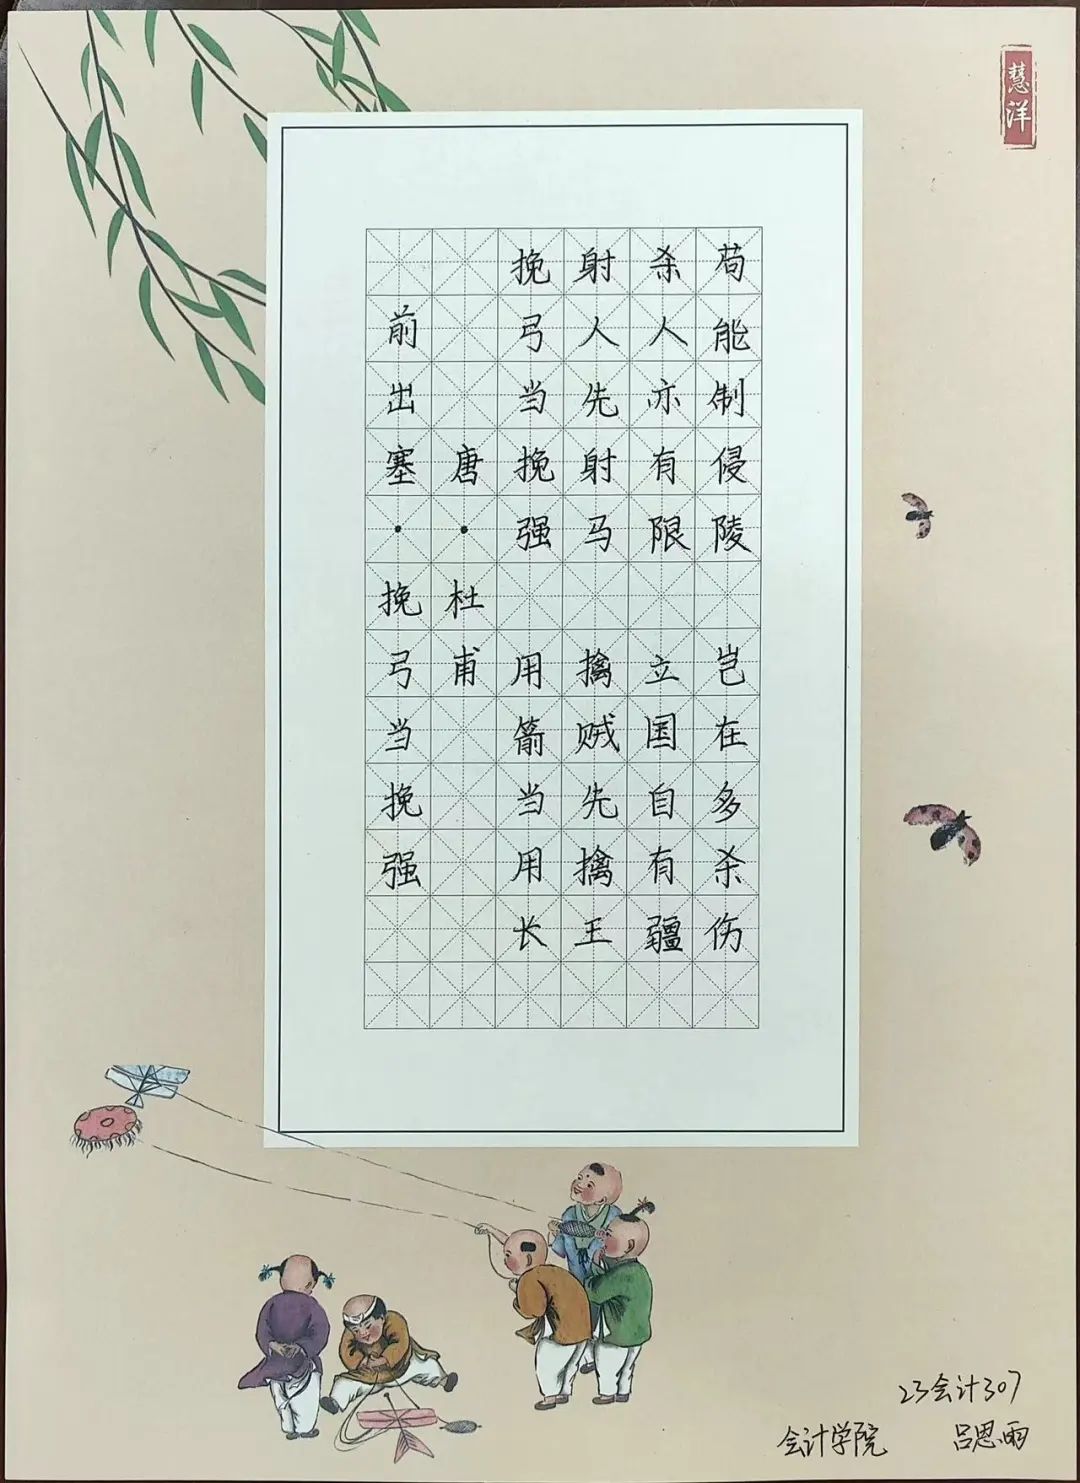 慧洋
前出塞·挽弓当挽强
唐·杜甫
挽弓当挽强 用箭当用长
射人先射马 擒贼先擒王
杀人亦有限 立国自有疆
苟能制侵陵 岂在多杀伤
23会计307
会计学院 吕思雨